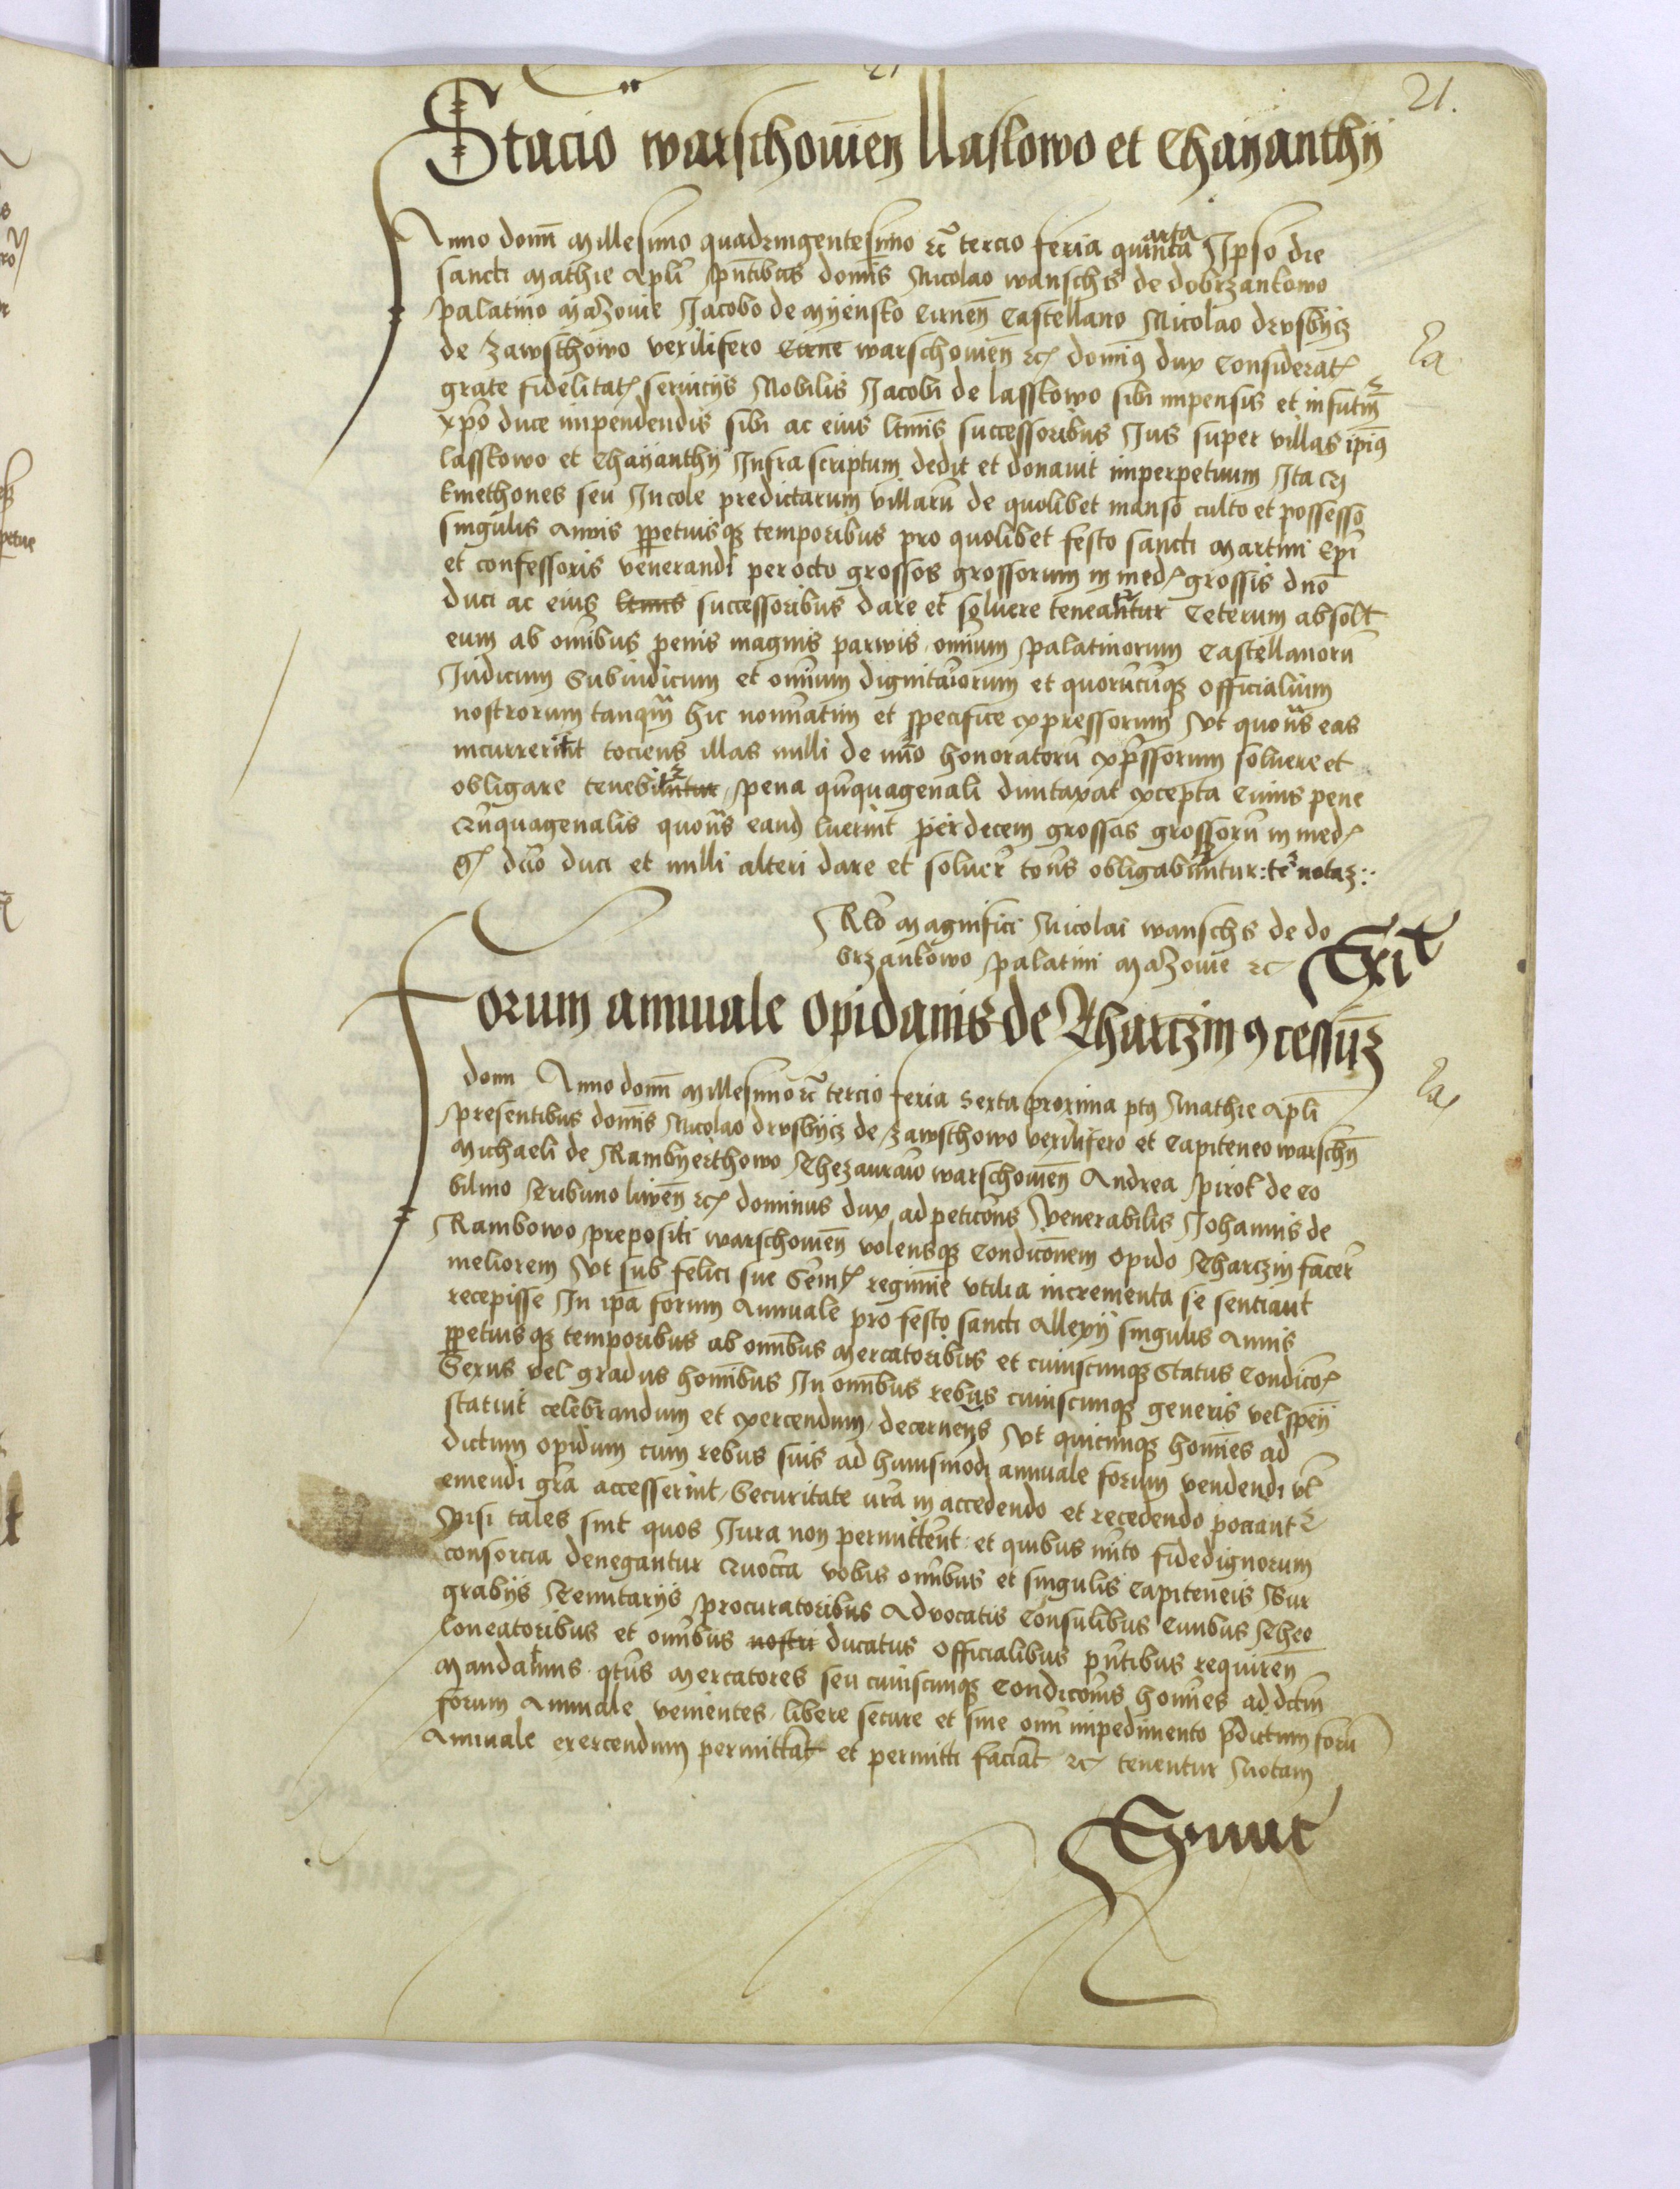 21.
Stacio warschouien llaskowo et Chayanthy
Anno domi Millesimo quadringentesimo rc tercio feria quinta arta Ipso die
sancti Mathie apli pntibus domis Nicolao wanschs de dobrzankowo
palatino Mazouie Jacobo de Myensko Cirnen Castellano Nicolao drvsbycz
de zawsthowo vexilifero Cirne warschouien rc dominus dux Considerat
grate fidelitat seruicijs Nobilis Jacobi de lasskowo sibi impensis et infutm
xpo duce impendendis sibi ac eius ltmis successoribus Jus super villas ipius
lasskowo et Chayanthy Infra scriptum dedit et donauit imperpetuum Ita
kmethones seu Incole predictarum villaru de quolibet manso culto et possesso
singulis Annis ppetuisque temporibus pro quolibet festo sancti Martini Epi
et confessoris venerandi per octo grossos grossorum in med grossis dno
duci ac eius ltmis successoribus dare et soluere teneantur Ceterum absolt
eum ab omibus penis magnis parwis omium palatinorum Castellanoru
Judicum Subiudicum et omium dignitariorum et quorucunque officialium
nostrorum tanqm hic nominatim et specifice expressorum Vt quotiens eas
incurrerit tociens illas nulli de nuo honoratoru expssorum soluere et
obligare tenebitur pena quinquagenali duntaxat excepta Cuius pene
Quinquagenalis quotiens eand luerint per decem grossos grossoru in med
g duo duci et nulli alteri dare et soluer tons obligabuntur: te notaz:
Rlo Magnifici Nicolai wanschs de do
brzankowo palatini Mazouie rc Exit
Forum annuale opidanis de Tharczin cessuz
domi Anno domi Millesimo rc tercio feria Sexta proxima pt Mathie apli
presentibus domis Nicolao drvsbycz de zawsthowo vexilifero et Capiteneo warschn
Michaeli de Rambyerthowo Thezaurario warschouien Andrea pirol de eo
bilino Tribuno liwen rc dominus dux ad peticons Venerabilis Johannis de
Rambowo prepositi warschouien volensque Condiconem opido Tharczin facer
meliorem Vt sub felici sue Seruit regimie vtilia incrementa se sentiant
recepisse In ipa forum Annuale pro festo sancti Allexy singulis Annis
ppetuisque temporibus ab omibus Mercatoribus et cuiuscunque Status Condico
Sexus vel gradus homibus In omibus rebus cuiuscunque generis vel speij
statuit celebrandum et exercendum decernens Vt quicunque homies ad
dictum opidum cum rebus suis ad huiusmodi annuale forum vendendi vl
emendi gra accesserint Securitate ura in accedendo et recedendo pociant
Nisi tales sint quos Jura non permittent et quibus mito fidedignorum
consorcia denegantur Quocca vobis omibus et singulis Capiteneis Bur
grabijs Tenutarijs procuratoribus Advocatis Consulibus Ciuibus Theo
loneatoribus et omibus nostri ducatus Officialibus pntibus requiren
Mandamus qtus Mercatores seu cuiuscunque Condiconis homies ad dctm
forum Annuale venientes libere secure et sine omi impedimento pdictum foru
Annuale exercendum permittat et permitti faciat rc tenentur Notam
Exiuit